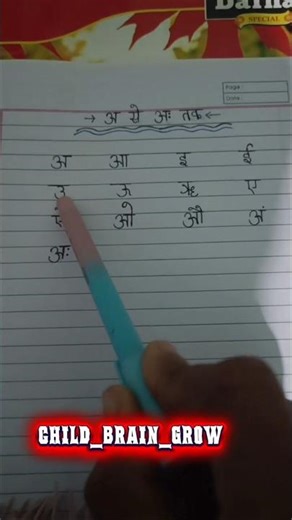 SPECIAL
Page :
Date :
→ अ से अः तक ←
अ आ इ ई
उ ऊ ऋ ए
ऐ ओ औ अं
अः
CHILD_BRAIN_GROW